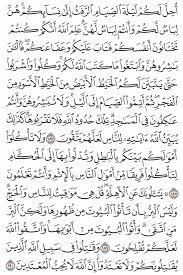 أُحِلَّ لَكُمْ لَيْلَةَ ٱلصِّيَامِ ٱلرَّفَثُ إِلَىٰ نِسَآئِكُمْ هُنَّ
لِبَاسٌ لَّكُمْ وَأَنتُمْ لِبَاسٌ لَّهُنَّ عَلِمَ ٱللَّهُ أَنَّكُمْ كُنتُمْ
تَخْتَانُونَ أَنفُسَكُمْ فَتَابَ عَلَيْكُمْ وَعَفَا عَنكُمْ فَٱلْـَٰٔنَ
بَـٰشِرُوهُنَّ وَٱبْتَغُوا۟ مَا كَتَبَ ٱللَّهُ لَكُمْ وَكُلُوا۟ وَٱشْرَبُوا۟
حَتَّىٰ يَتَبَيَّنَ لَكُمُ ٱلْخَيْطُ ٱلْأَبْيَضُ مِنَ ٱلْخَيْطِ ٱلْأَسْوَدِ مِنَ
ٱلْفَجْرِ ثُمَّ أَتِمُّوا۟ ٱلصِّيَامَ إِلَى ٱلَّيْلِ وَلَا تُبَـٰشِرُوهُنَّ وَأَنتُمْ
عَـٰكِفُونَ فِى ٱلْمَسَـٰجِدِ تِلْكَ حُدُودُ ٱللَّهِ فَلَا تَقْرَبُوهَا كَذَٰلِكَ
يُبَيِّنُ ٱللَّهُ ءَايَـٰتِهِۦ لِلنَّاسِ لَعَلَّهُمْ يَتَّقُونَ ١٨٧ وَلَا تَأْكُلُوٓا۟
أَمْوَٰلَكُم بَيْنَكُم بِٱلْبَـٰطِلِ وَتُدْلُوا۟ بِهَآ إِلَى ٱلْحُكَّامِ
لِتَأْكُلُوا۟ فَرِيقًا مِّنْ أَمْوَٰلِ ٱلنَّاسِ بِٱلْإِثْمِ وَأَنتُمْ تَعْلَمُونَ
١٨٨ يَسْـَٔلُونَكَ عَنِ ٱلْأَهِلَّةِ قُلْ هِىَ مَوَٰقِيتُ لِلنَّاسِ وَٱلْحَجِّ
وَلَيْسَ ٱلْبِرُّ بِأَن تَأْتُوا۟ ٱلْبُيُوتَ مِن ظُهُورِهَا وَلَـٰكِنَّ ٱلْبِرَّ
مَنِ ٱتَّقَىٰ وَأْتُوا۟ ٱلْبُيُوتَ مِنْ أَبْوَٰبِهَا وَٱتَّقُوا۟ ٱللَّهَ
لَعَلَّكُمْ تُفْلِحُونَ ١٨٩ وَقَـٰتِلُوا۟ فِى سَبِيلِ ٱللَّهِ ٱلَّذِينَ
يُقَـٰتِلُونَكُمْ وَلَا تَعْتَدُوٓا۟ إِنَّ ٱللَّهَ لَا يُحِبُّ ٱلْمُعْتَدِينَ ١٩٠